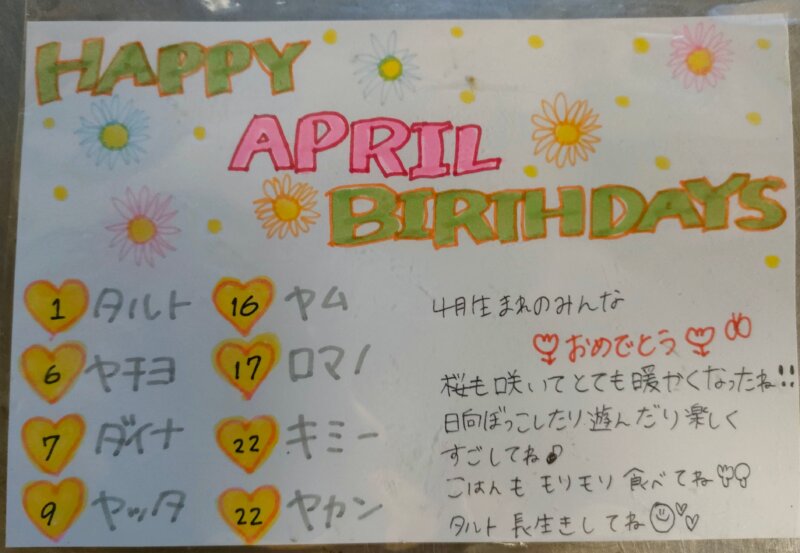 HAPPY
APRIL
BIRTHDAYS
1 タルト
6 ヤチヨ
7 ダイナ
9 ヤッタ
16 ヤム
17 ロマノ
22 キミー
22 ヤカン
4月生まれのみんな
おめでとう
桜も咲いてとても暖かくなったね!!
日向ぼっこしたり遊んだり楽しく
すごしてね♪
ごはんも モリモリ 食べてね
タルト 長生きしてね